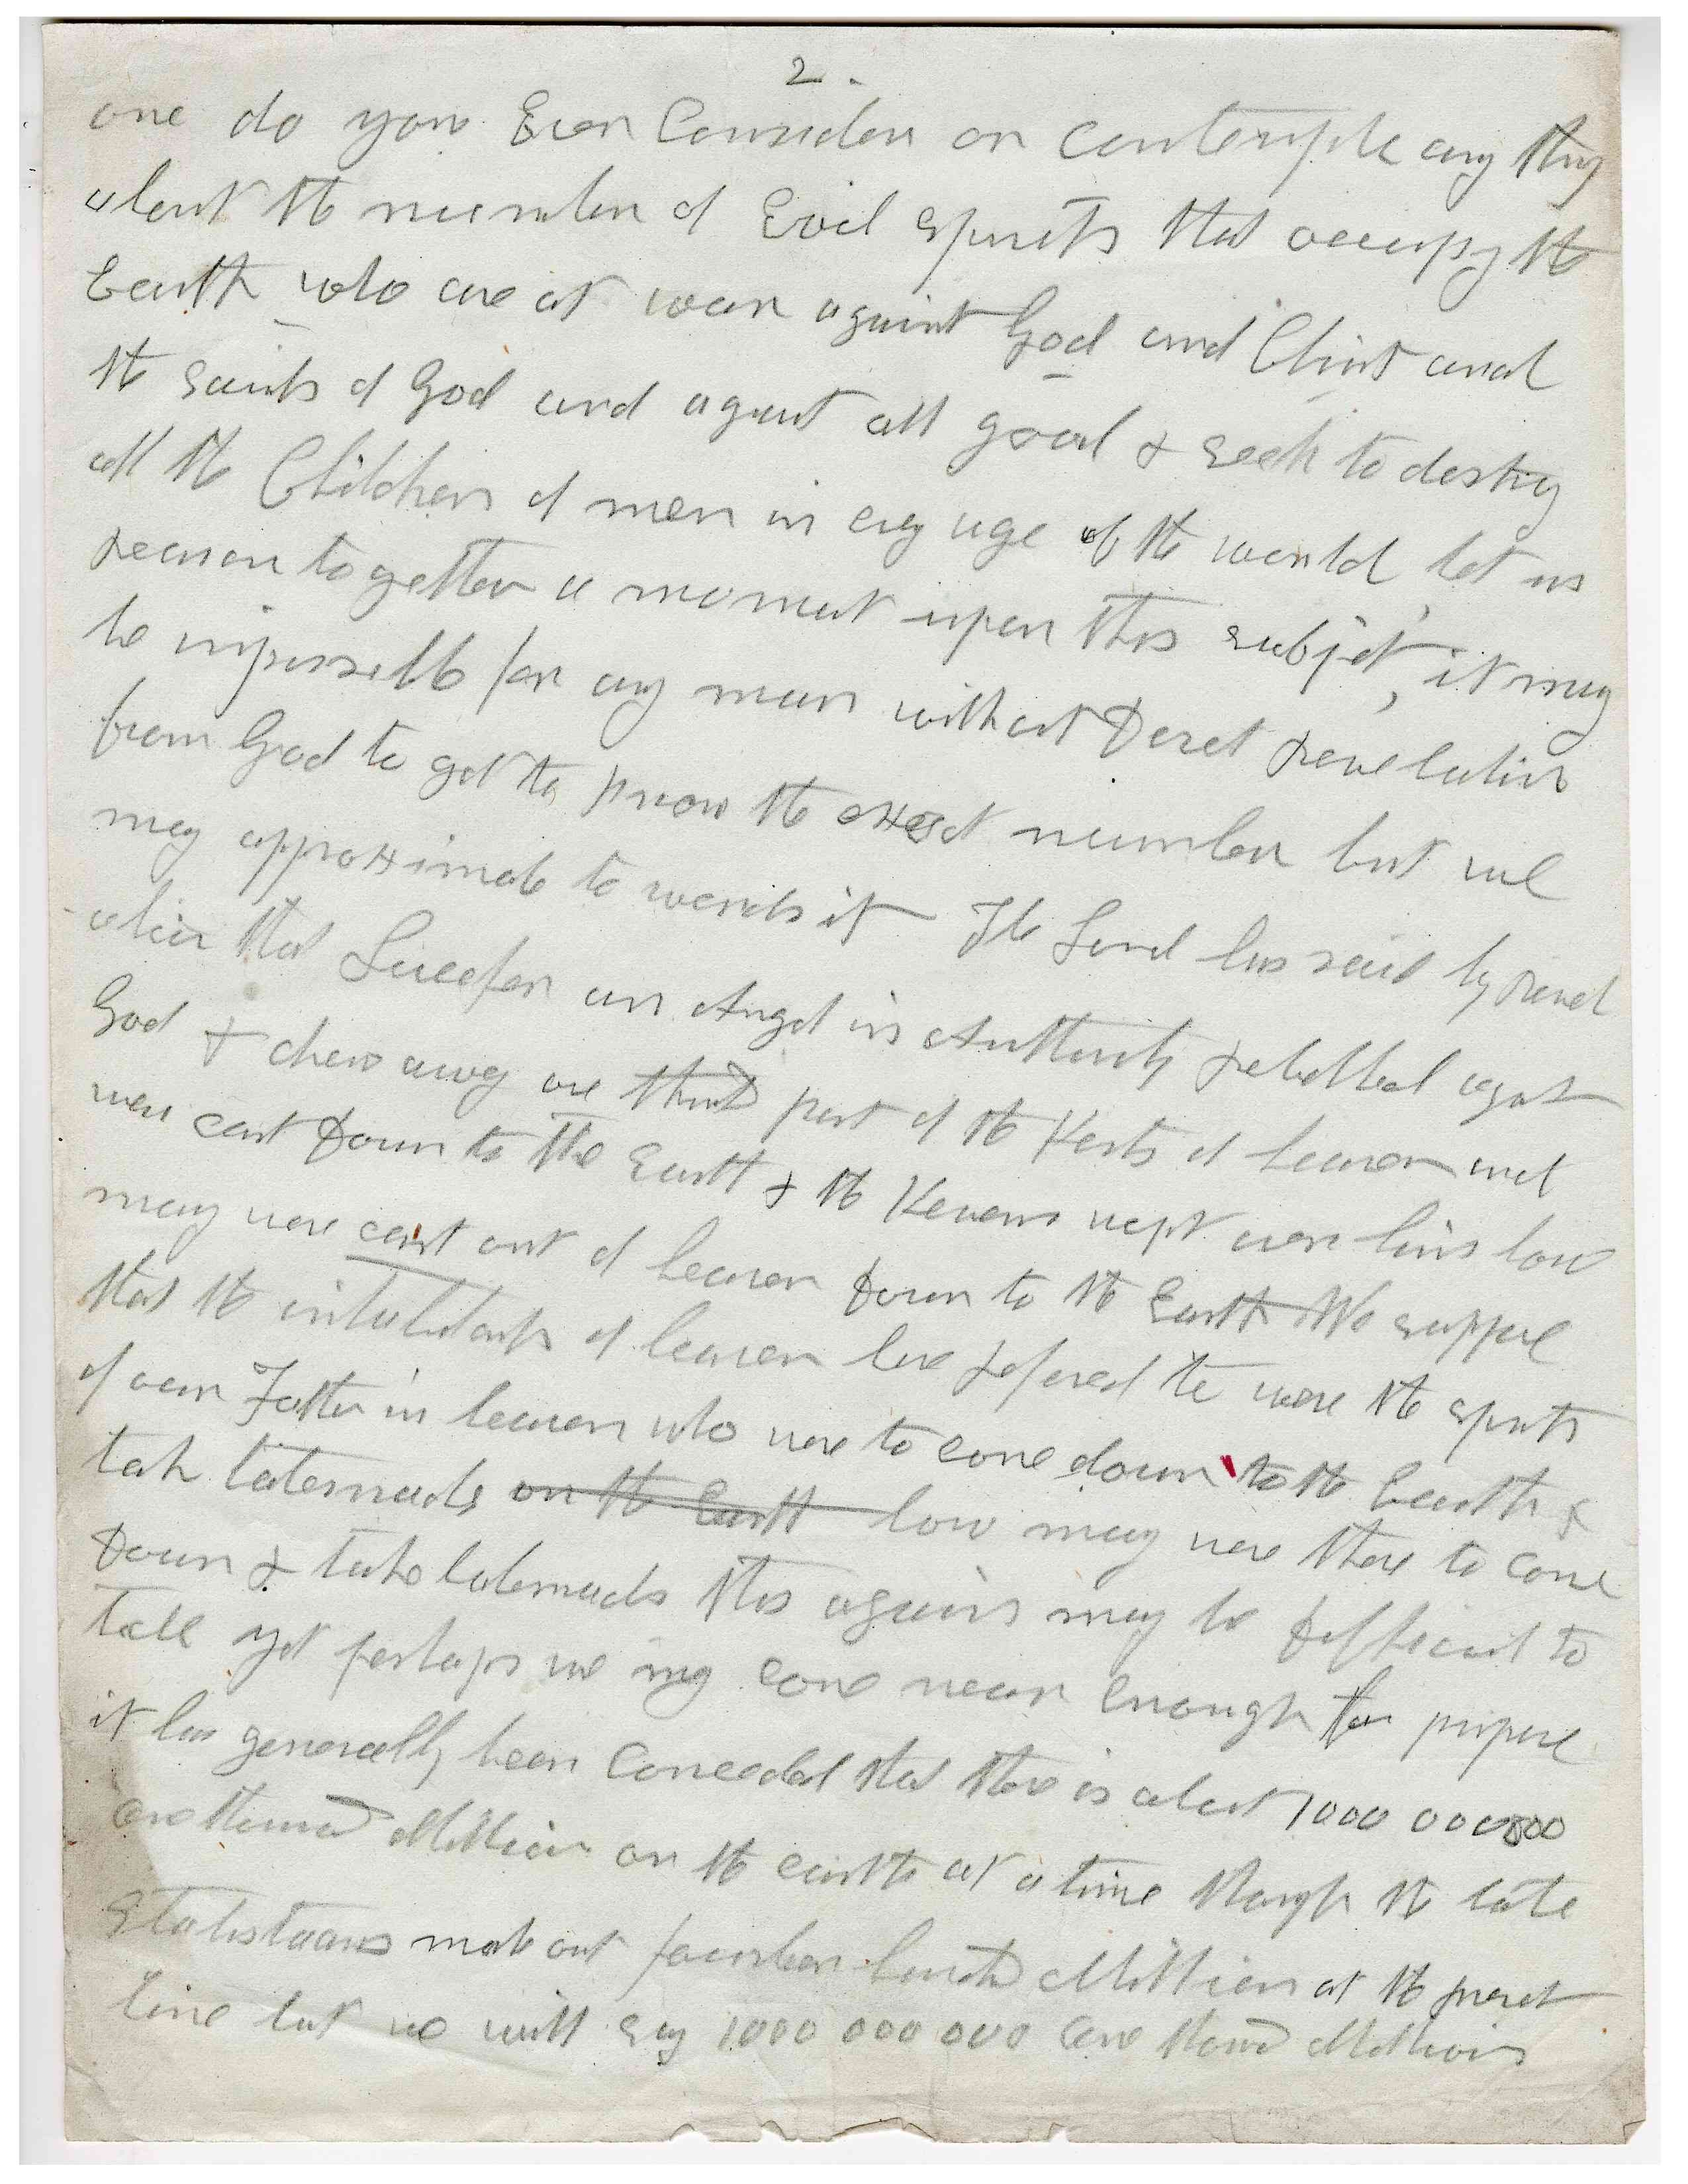 2.
one do you Ever Consider or contemple any thing
about the number of Evil spirits that occupy the
Earth who are at war against God and Christ and
the saints of God and against all good & seek to destroy
all the Children of men in evry age of the world, let us
reason together a moment upon this subject, it may
be impossible for any man without Direct revelation
from God to get to know the exact number but we
may approximate to wards it The Lord has said by revel
ation that Lucefer an Angel in Authority rebelled against
God & drew away one third part of the Hosts of heaven and
was cast Down to the Earth & the Hevens wept over him how
many were cast out of heaven Down to the Earth We suppose
that the inhabitants of heaven here refered to were the spirits
of our Father in heaven who were to come down to the Earth &
take tabernacles on the Earth how many were there to come
Down & take tabernacles this again may be Difficult to
tell yet perhaps we may come near Enough for purpose
it has generally been Conceded that there is about 1000 000 000
one thousand Million on the earth at a time though the late
Statisticians make out fourteen hundred Million at the present
time but we will say 1000 000 000 One thousand Millions